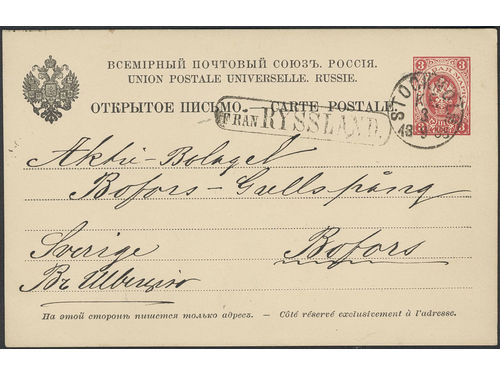 ВСЕМІРНЫЙ ПОЧТОВЫЙ СОЮЗЪ. РОССІЯ.
UNION POSTALE UNIVERSELLE. RUSSIE.
ОТКРЫТОЕ ПИСЬМО. — CARTE POSTALE
3 3
STOCKHOLM
FRÅN RYSSLAND.
Aktie-Bolaget
Bofors-Gullspång
Sverige Bofors
Въ Швецію
На этой сторонѣ пишется только адресъ. — Côté réservé exclusivement à l'adresse.